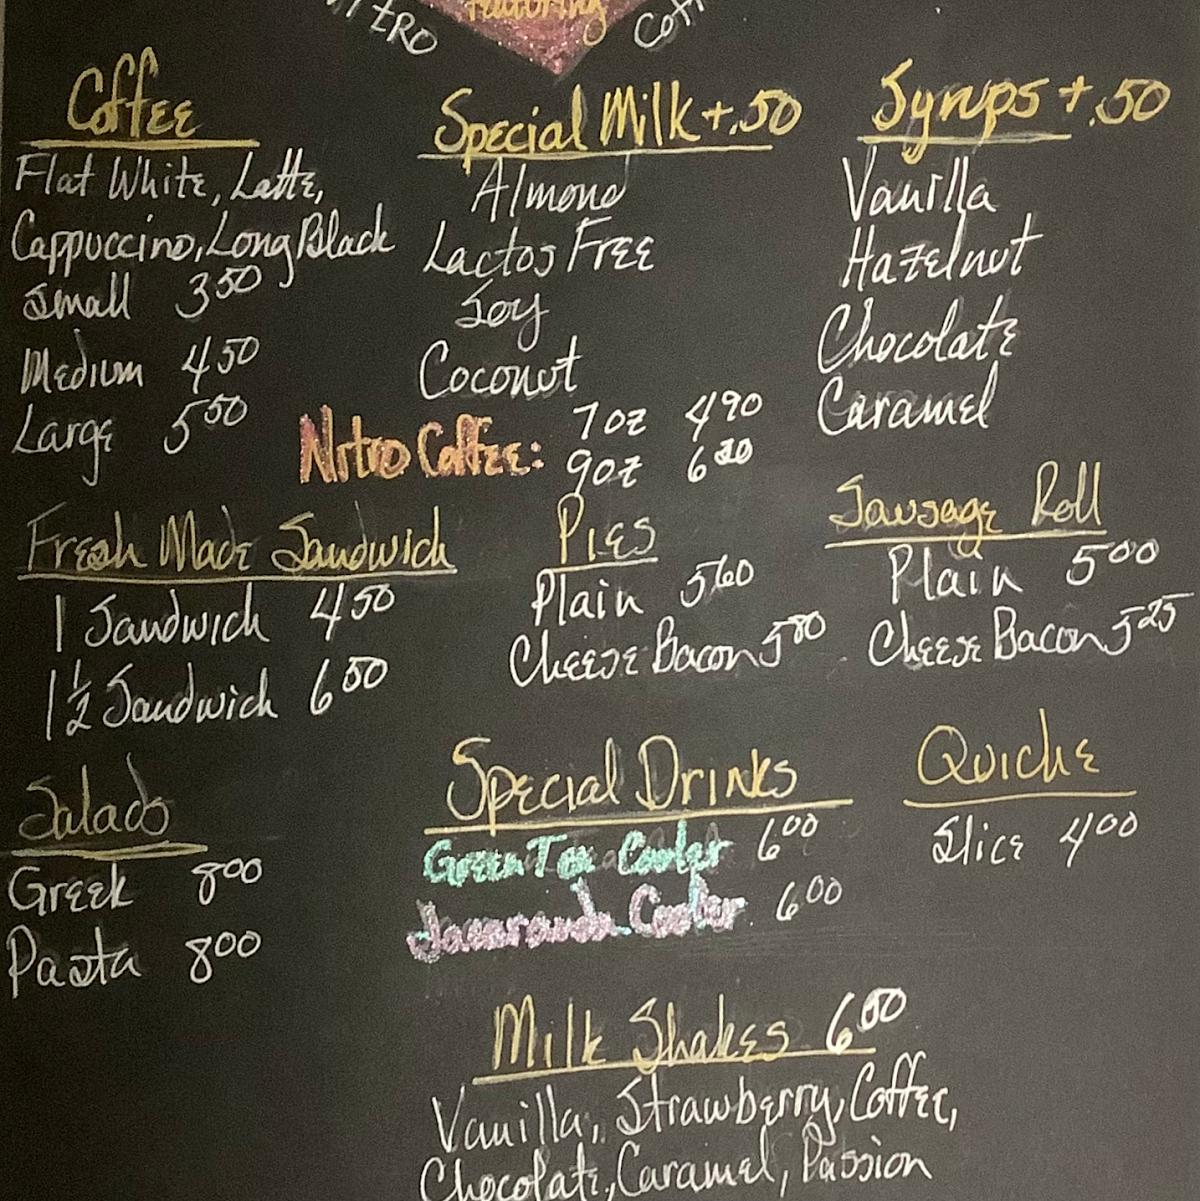 featuring
Coffee
Flat White, Latte,
Cappuccino, Long Black
Small 3 50
Medium 4 50
Large 5 50
Special Milk + .50
Almond
Lactos Free
Soy
Coconut
Syrups + .50
Vanilla
Hazelnut
Chocolate
Caramel
Nitro Coffee: 7oz 4 90
9oz 6
Fresh Made Sandwich
1 Sandwich 4 50
1 1/2 Sandwich 6 50
Pies
Plain 5 60
Cheese Bacon 5 80
Sausage Roll
Plain 5 00
Cheese Bacon 5 25
Salads
Greek 8 00
Pasta 8 00
Special Drinks
Green Tea Cooler 6 00
Jacaranda Cooler 6 00
Quiche
Slice 4 00
Milk Shakes 6 50
Vanilla, Strawberry, Coffee,
Chocolate, Caramel, Passion